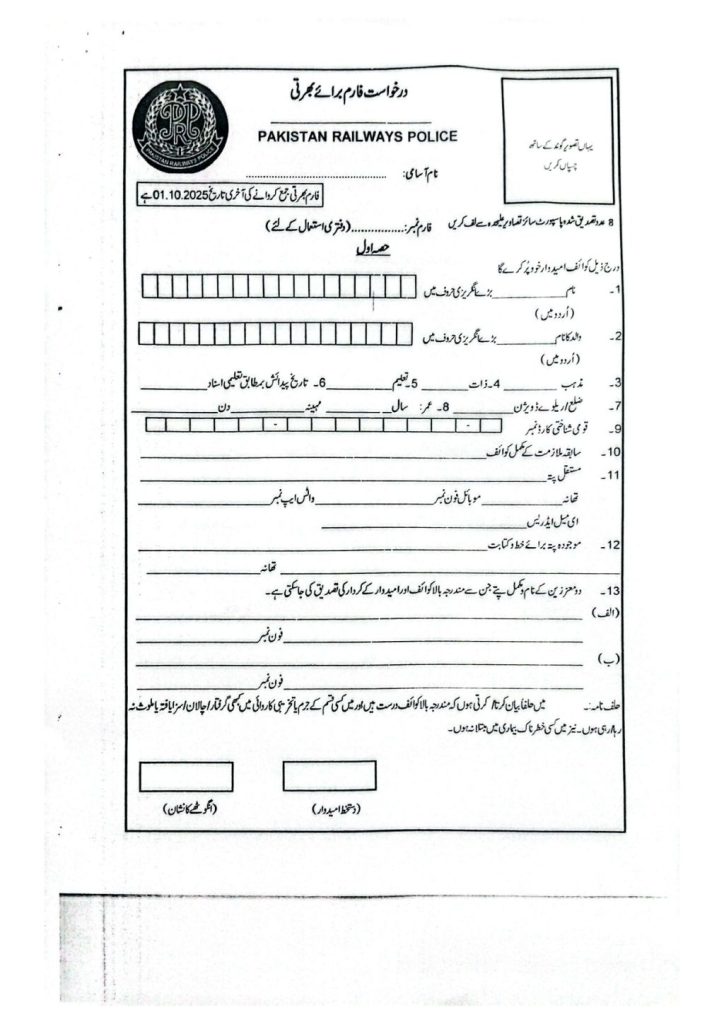 درخواست فارم برائے بھرتی
PAKISTAN RAILWAYS POLICE
PRP
PAKISTAN RAILWAYS POLICE
یہاں تصویر گوند کے ساتھ
چسپاں کریں
نام آسامی: ........................................
فارم بھرتی جمع کروانے کی آخری تاریخ 01.10.2025 ہے
8 عدد تصدیق شدہ پاسپورٹ سائز تصاویر علیحدہ سے لف کریں فارم نمبر:................(دفتری استعمال کے لئے)
حصہ اول
درج ذیل کوائف امیدوار خود پُر کرے گا
1۔ نام__________ بڑے انگریزی حروف میں
(اُردو میں)
2۔ والد کا نام__________ بڑے انگریزی حروف میں
(اُردو میں)
3۔ مذہب ________ 4۔ ذات ________ 5۔ تعلیم ________ 6۔ تاریخ پیدائش بمطابق تعلیمی اسناد ________
7۔ ضلع/ریلوے ڈویژن ________ 8۔ عمر: سال ________ مہینہ ________ دن ________
9۔ قومی شناختی کارڈ نمبر - -
10۔ سابقہ ملازمت کے مکمل کوائف ________
11۔ مستقل پتہ ________
تھانہ ________ موبائل فون نمبر ________ واٹس ایپ نمبر ________
ای میل ایڈریس ________
12۔ موجودہ پتہ برائے خط و کتابت ________
تھانہ ________
13۔ دو معززین کے نام و مکمل پتے جن سے مندرجہ بالا کوائف اور امیدوار کے کردار کی تصدیق کی جاسکتی ہے۔
(الف) ________
فون نمبر ________
(ب) ________
فون نمبر ________
حلف نامہ:۔ میں حلفاً بیان کرتا/کرتی ہوں کہ مندرجہ بالا کوائف درست ہیں اور میں کسی قسم کے جرم یا تخریبی کاروائی میں کبھی گرفتار/چالان/سزا یافتہ یا ملوث نہ
رہا/رہی ہوں۔ نیز میں کسی خطرناک بیماری میں مبتلا نہ ہوں۔
(دستخط امیدوار) (انگوٹھے کا نشان)